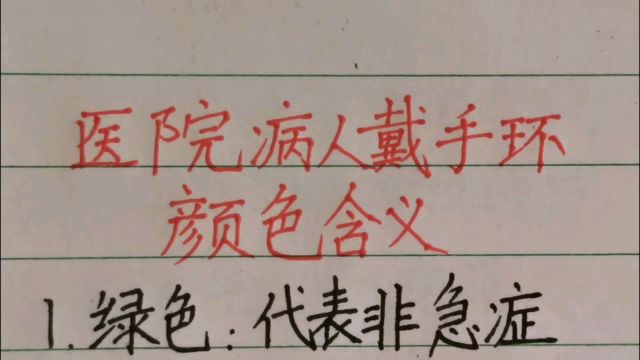 医院病人戴手环
颜色含义
1.绿色:代表非急症